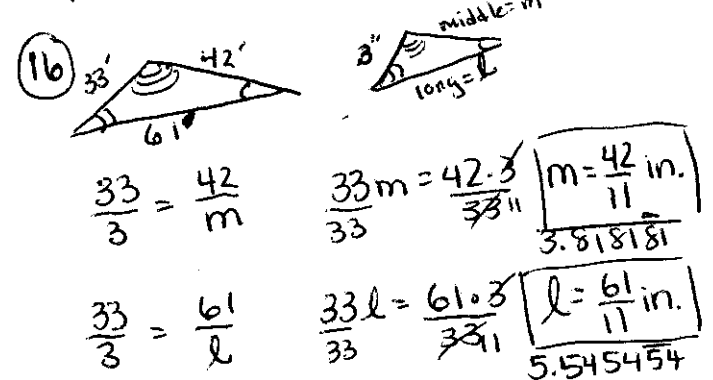 16
33' 42' 61'
3" middle = m long = l
33/3 = 42/m 33m/33 = 42·3/33 11 m = 42/11 in.
3.818181
33/3 = 61/l 33l/33 = 61·3/33 11 l = 61/11 in.
5.545454